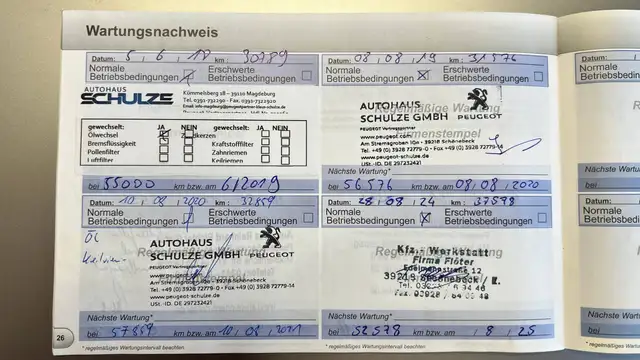 Wartungsnachweis
Datum: 5 / 6 / 18 km: 30789
Normale Betriebsbedingungen
Erschwerte Betriebsbedingungen
AUTOHAUS
SCHULZE
Kümmelsberg 28 - 39110 Magdeburg
gewechselt: JA NEIN
gewechselt: JA NEIN
Ölwechsel
kerzen
Bremsflüssigkeit
Kraftstofffilter
Pollenfilter
Zahnriemen
Luftfilter
Keilriemen
bei 55000 km bzw. am 6/2019
Datum: 08 / 08 / 19 km: 31576
Normale Betriebsbedingungen
Erschwerte Betriebsbedingungen
Regelmäßige Wartung
AUTOHAUS
SCHULZE GMBH PEUGEOT
PEUGEOT Vertragspartner
www.peugeot.com
Am Stremsgraben 10a - 39218 Schönebeck
Tel. +49 (0) 3928 72779-0 - Fax +49 (0) 3928 72779-14
www.peugeot-schulze.de
USt.-ID. DE 297232421
Nächste Wartung*
bei 56576 km bzw. am 08/08/2020
Datum: 10 / 08 / 2020 km: 32859
Normale Betriebsbedingungen
Erschwerte Betriebsbedingungen
Öl
AUTOHAUS
SCHULZE GMBH PEUGEOT
Tel. +49 (0) 3928 72779-0 - Fax +49 (0) 3928 72779-14
www.peugeot-schulze.de
USt.-ID. DE 297232421
Nächste Wartung*
bei 57859 km bzw. am 10/08/2021
Datum: 28 / 08 / 24 km: 37578
Normale Betriebsbedingungen
Erschwerte Betriebsbedingungen
Kfz. Werkstatt
Firma Flöter
Edelmannstraße 12
39218 Schönebeck / E.
Nächste Wartung*
bei 52578 km bzw. am / 8 / 25
* regelmäßiges Wartungsintervall beachten.
* regelmäßiges Wartungsintervall beachten.
26
Datum:
Normale
Betriebsbed
Nächste W
bei
Datum:
Normale
Betriebsbed
Nächste W
bei
* regelmäßiges